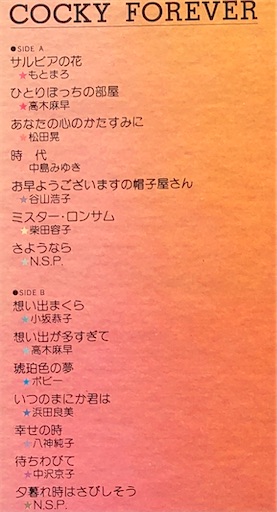 COCKY FOREVER
●SIDE A
サルビアの花
★もとまろ
ひとりぼっちの部屋
★高木麻早
あなたの心のかたすみに
★松田晃
時 代
中島みゆき
お早ようございますの帽子屋さん
★谷山浩子
ミスター・ロンサム
★柴田容子
さようなら
★N.S.P.
●SIDE B
想い出まくら
★小坂恭子
想い出が多すぎて
★高木麻早
琥珀色の夢
★ボビー
いつのまにか君は
★浜田良美
幸せの時
★八神純子
待ちわびて
★中沢京子
夕暮れ時はさびしそう
★N.S.P.